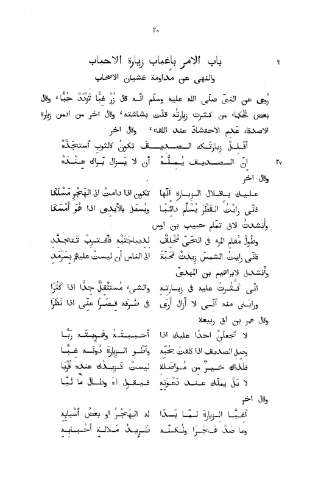 ٢٠
٩ باب الامر باغباب زيارة الاحباب
والنهى عن مداومة غشيان الاصحاب
رُوِيَ عن النبيّ صلّى الله عليه وسلّم انّه قال زُرْ غِبًّا تَزْدَدْ حُبًّا، وقال
بعض من كثرت زيارته قلّت بشاشته، وقال اخر من ادمن زيارة
الاصدقاء عدم الاحتشاد عند اللقاء، وقال اخر
أَقْلِلْ زيارتك الصديق تكون كالثوب استجدّه
٢٧ إنّ الصديق يُمِلّه أن لا يزال يراك عنده
وقال اخر
عليك باقلال الزيارة انّها تكون اذا دامت الى الهجر مسلكا
فانّى رأيت القطر يُسْأَم دائبا ويُسأل بالأيدى اذا هو أمسكا
وأنشدت لابى تمّام حبيب بن اوس
وطول مقام المرء فى الحىّ مخلق لديباجتيه فاغترب تتجدّد
فانّى رأيت الشمس زيدت محبّة الى الناس أن ليست عليهم بسرمد
وأنشدنى لابراهيم بن المهدىّ
انّى كثرت عليه فى زيارته والشىء مستثقل جدّا اذا كثرا
ورابنى منه أنّى لا أزال أرى فى طرفه قصرا عنّى اذا نظرا
وقال عمر بن ابى ربيعة
لا تجعلنْ احدا عليك اذا أحببته وهويته ربّا
وصل الصديق اذا كلفت بحبّه واطو الزيارة دونه غبّا
فلذاك خير من مواصلة ليست تزيدك عنده قربا
لا بل يملّك عند دعوته فيقول اه وطال ما لبّا
وقال اخر
أغبّا الزيارة لمّا بدا له الهجر او بعض أسبابه
وما صدّ هاجرا ولكنّه طريد ملالة أحبابه